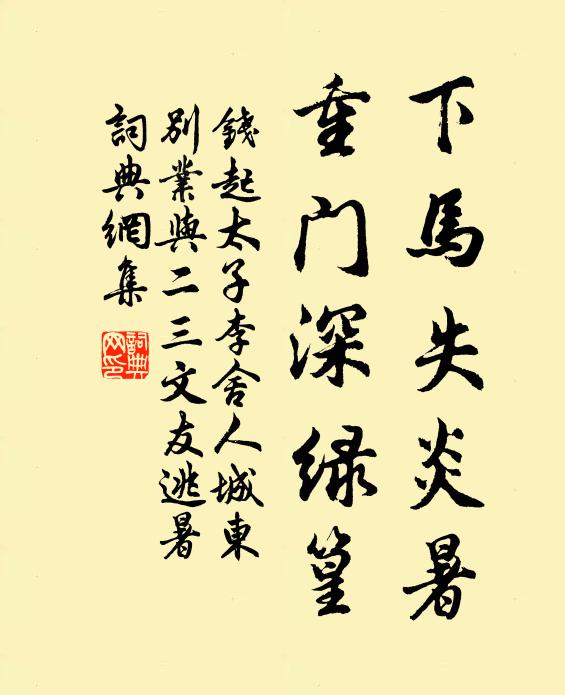 下馬失炎暑
重门深緑篁
錢起太子李舍人城東
別業與二三文友逃暑
詞典網集
詞典网印